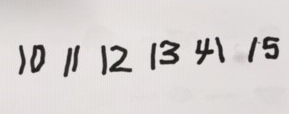 10 11 12 13 41 15